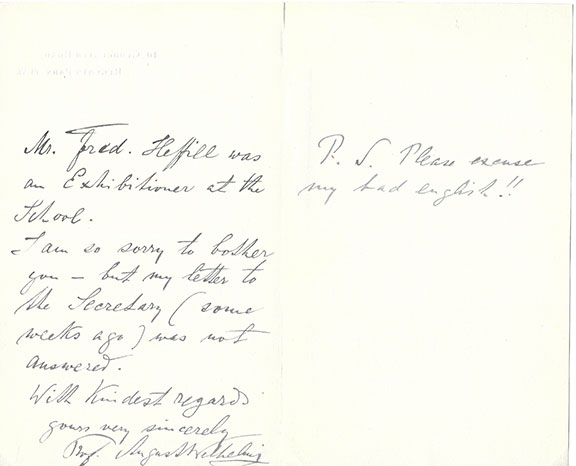 Mr. Fred. Heffill was
an Exhibitioner at the
School.
I am so sorry to bother
you – but my letter to
the Secretary (some
weeks ago) was not
answered.
With Kindest regards
yours very sincerely
Prof. August Wilhelmj
P. S. Please excuse
my bad english!!